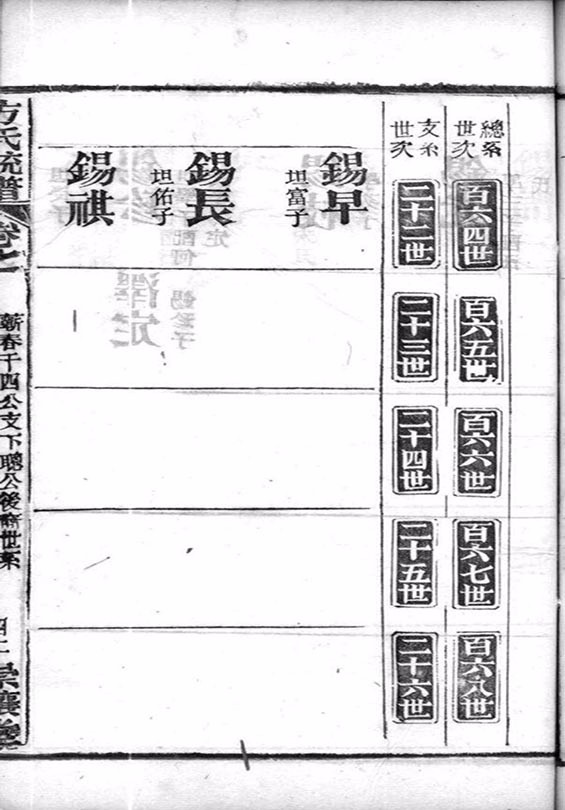 總系世次
百六四世
百六五世
百六六世
百六七世
百六八世
支系世次
二十二世
二十三世
二十四世
二十五世
二十六世
錫早
坦富子
錫長
坦佑子
錫祺
方氏統譜
卷七
蘄春千四公支下聰公後裔世系